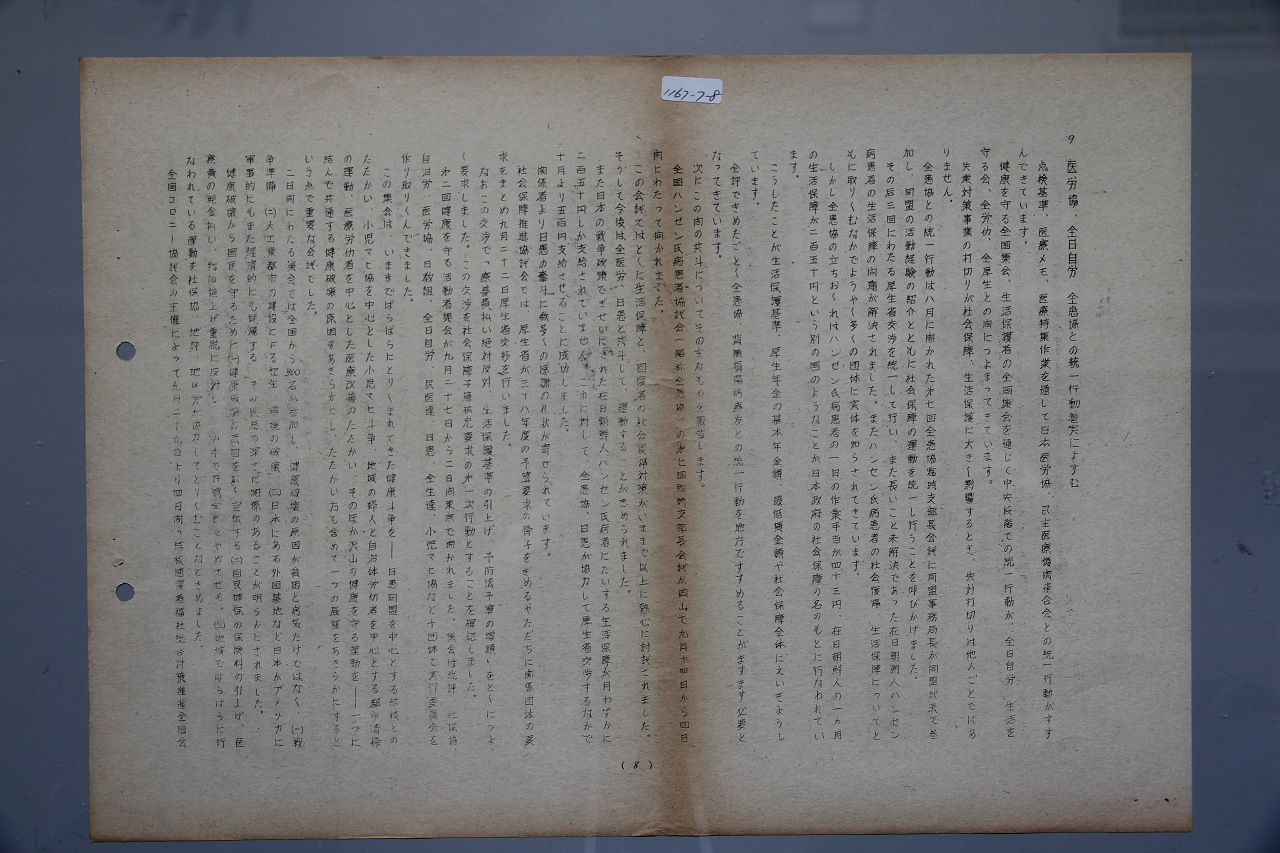 1167-7-8
9 医労協、全日自労、全患協との統一行動着実にすすむ
点検基準、医療メモ、医療特集作業を通して日本医労協、民主医療機関連合会との統一行動がすす
んできています。
健康を守る全国集会、生活保護者の全国集会を通じて中央段階での統一行動が、全日自労、生活を
守る会、全労協、全厚生との間につよまってきています。
失業対策事業の打切りが社会保障、生活保護に大きく影響するとき、失対打切りは他人ごとではあ
りません。
全患協との統一行動は八月に開かれた第七回全患協臨時支部長会議に同盟事務局長が同盟代表で参
加し、同盟の活動経験の紹介とともに社会保障の運動を統一し行うことを呼びかけました。
その后三回にわたる厚生省交渉を統一して行い、また長いこと未解決であった在日朝鮮人ハンゼン
病患者の生活保障の問題が解決されました。またハンゼン氏病患者の社会復帰、生活保障についてと
もに取りくむなかでようやく多くの団体に実体を知らされてきています。
しかし全患協の立ちおくれはハンゼン氏病患者の一日の作業手当が四十三円、在日朝鮮人の一カ月
の生活保障が二百五十円という別の国のようなことが日本政府の社会保障の名のもとに行なわれてい
ます。
こうしたことが生活保護基準、厚生年金の基本年金額、最低賃金額や社会保障全体にえいきようし
ています。
全評できめたごとく全患協、脊髄損傷病療友との統一行動を地方ですすめることがますます必要と
なってきています。
次にこの間の共斗についてその主なものを報告します。
全国ハンゼン氏病患者協議会(略称全患協)の第七回臨時支部長会議が岡山で九月十四日から四日
間にわたって開かれました。
この会議ではとくに生活保障と、回復者の社会復帰対策がいままで以上に熱心に討議されました。
そうして今後は全医労、日患と共斗して、運動することがきめられました。
また日本の戦争政策でぎせいにされた在日朝鮮人ハンゼン氏病者にたいする生活保障が月わずかに
二百五十円しか支給されていません。これに対して、全患協、日患が協力して厚生省交渉するなかで
十月より五百円支給させることに成功しました。
関係者より日患の奮斗に数多くの感謝の礼状が寄せられています。
社会保障推進協議会では、厚生省が三十八年度の予算要求の骨子をきめるやただちに関係団体の要
求をまとめ九月二十二日厚生省交渉を行いました。
なおこの交渉で「療養費払い絶対反対、生活保護基準の引上げ、予防法予算の増額」をとくにつよ
く要求しました。この交渉を社会保障予算確定要求の第一次行動とすることを確認しました。
第二回健康を守る活動者集会が九月二十七日から二日間東京で開かれました。集会は総評、社保協
自治労、医労協、日教組、全日自労、民医連、日患、全生連、小児マヒ協など十団体で実行委員会を
作り取りくんできました。
この集会は、いままでばらばらにとりくまれてきた健康斗争を――日患同盟を中心とする結核との
たたかい、小児マヒ協を中心とした小児マヒ斗争、地域の婦人と自治体労仂者を中心とする都市清掃
の運動、医療労仂者を中心とした医療改善のたたかい、そのほか沢山の健康を守る運動を――一つに
結んで共通する健康破壊の原因をあきらかにし、たたかい方も含めて一つの展望をあきらかにすると
いう点で重要な会議でした。
二日間にわたる集会では全国から500名が参加し、健康破壊の原因が貧困と病気だけではなく、(一)戦
争準備 (二)大工業都市の建設による衛生、環境の破壊、(三)日本にある外国基地など日本がアメリカに
軍事的にもまた経済的にも従属する、その従属の深さに関係のあることが明らかにされました。
健康破壊から国民を守るために(一)健康破壊の原因を広く宣伝する (二)国民健保の保険料の引上げ、医
療費の現金払い、物価値上げ重税に反対し、 をやめさせる。(三)地域でばらばらに行
なわれている運動を社保協、地評、地区労が協力してとりくむことなどきめました。
全国コロニー協議会の主催によって九月二十九日より四日間、結核回復者福祉総合計策推進全国会
(8)